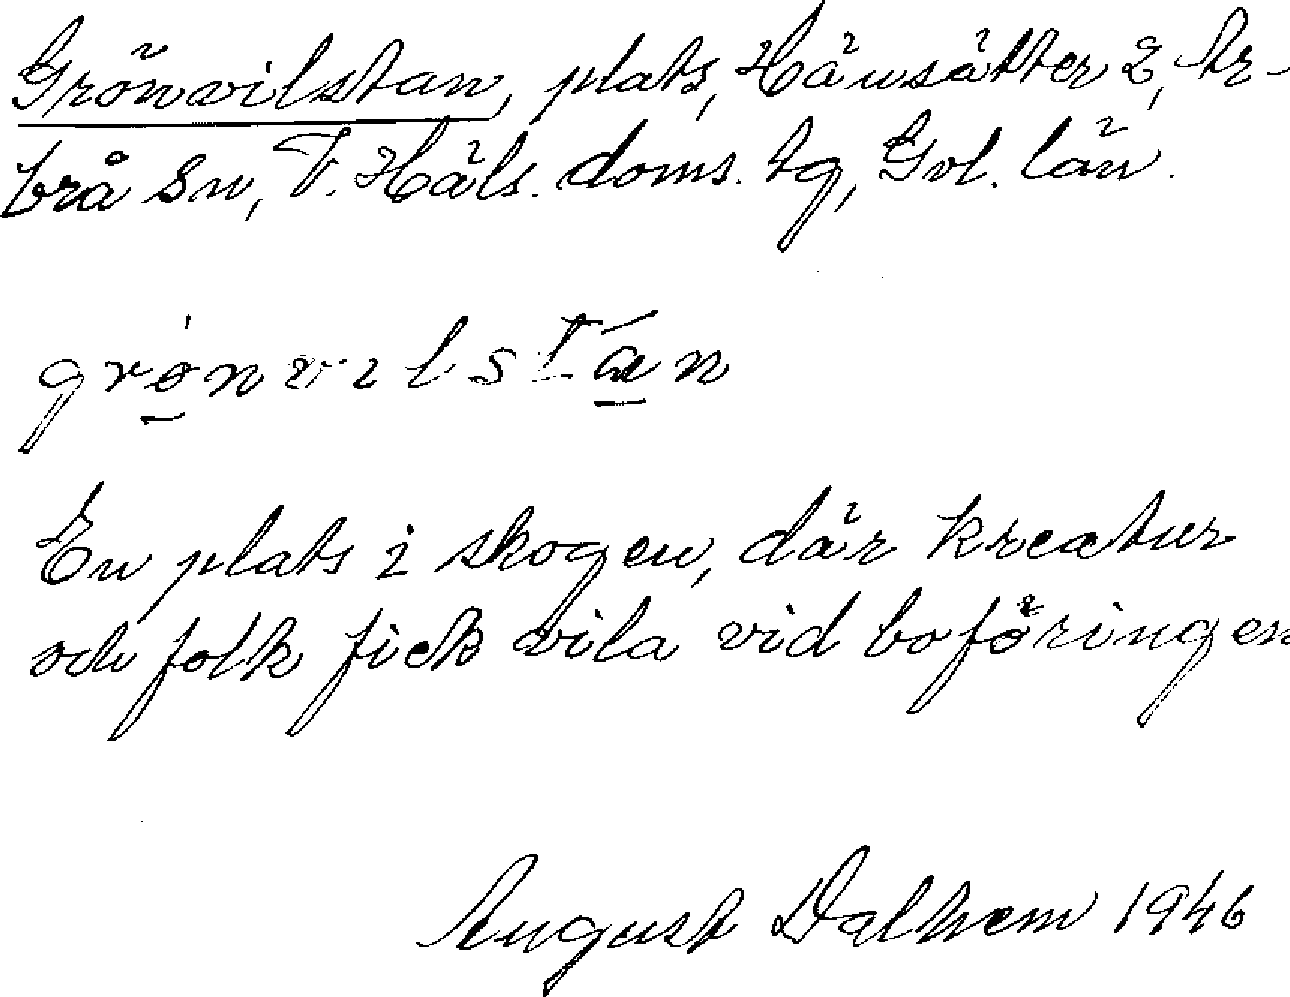 Grönvilstan, plats, Hänsätter 2, Ar-
brå sn, V. Häls. doms. tg, Gvl. län.
grønvɩlstan
En plats i skogen, där kreatur
och folk fick vila vid boföringen
August Dalhem 1946